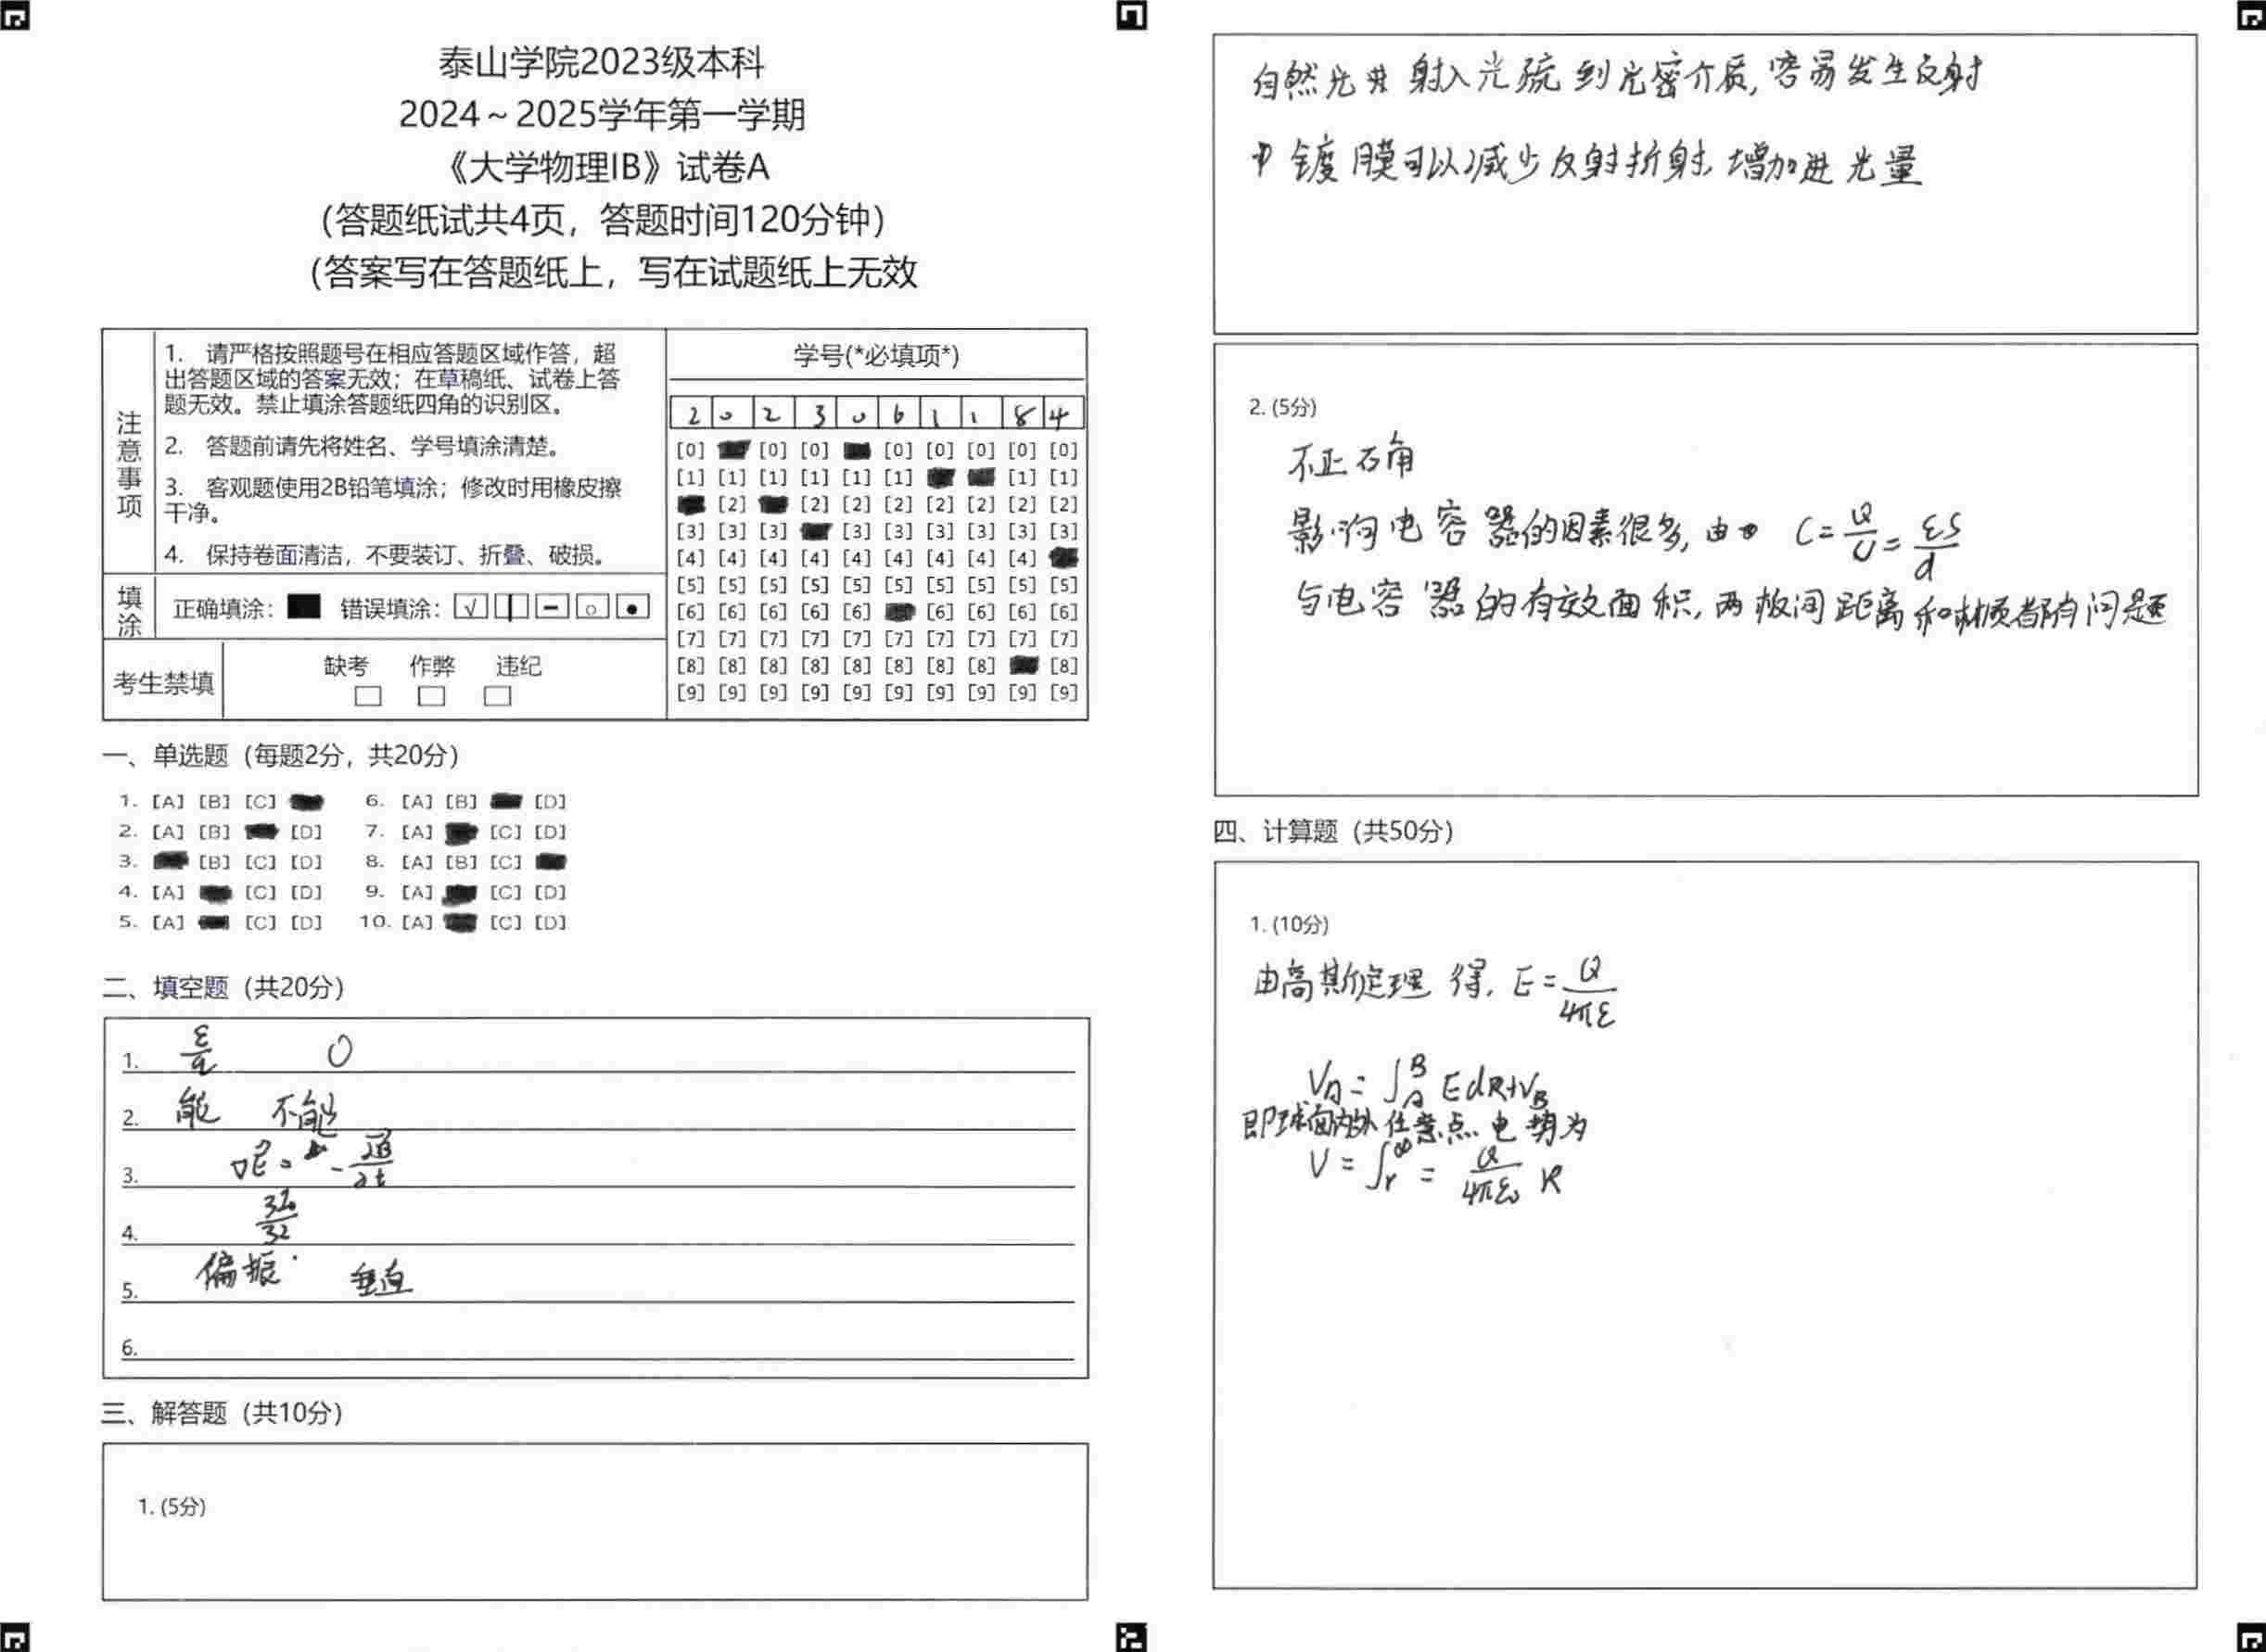 泰山学院2023级本科
2024～2025学年第一学期
《大学物理IB》试卷A
（答题纸试共4页，答题时间120分钟）
（答案写在答题纸上，写在试题纸上无效
注意事项
1. 请严格按照题号在相应答题区域作答，超
出答题区域的答案无效；在草稿纸、试卷上答
题无效。禁止填涂答题纸四角的识别区。
2. 答题前请先将姓名、学号填涂清楚。
3. 客观题使用2B铅笔填涂；修改时用橡皮擦
干净。
4. 保持卷面清洁，不要装订、折叠、破损。
填涂 正确填涂： 错误填涂：
考生禁填 缺考 作弊 违纪
学号(*必填项*)
2 0 2 3 0 6 1 1 8 4
[0] [0] [0] [0] [0] [0] [0] [0]
[1] [1] [1] [1] [1] [1] [1] [1]
[2] [2] [2] [2] [2] [2] [2] [2]
[3] [3] [3] [3] [3] [3] [3] [3] [3]
[4] [4] [4] [4] [4] [4] [4] [4] [4]
[5] [5] [5] [5] [5] [5] [5] [5] [5] [5]
[6] [6] [6] [6] [6] [6] [6] [6] [6]
[7] [7] [7] [7] [7] [7] [7] [7] [7] [7]
[8] [8] [8] [8] [8] [8] [8] [8] [8]
[9] [9] [9] [9] [9] [9] [9] [9] [9] [9]
一、单选题（每题2分，共20分）
1. [A] [B] [C] 6. [A] [B] [D]
2. [A] [B] [D] 7. [A] [C] [D]
3. [B] [C] [D] 8. [A] [B] [C]
4. [A] [C] [D] 9. [A] [C] [D]
5. [A] [C] [D] 10. [A] [C] [D]
二、填空题（共20分）
1. 0
2. 能 不能
3.
4.
5. 偏振 垂直
6.
三、解答题（共10分）
1. (5分)
自然光 射入光疏到光密介质，容易发生反射
镀膜可以减少反射折射，增加进光量
2. (5分)
不正确
影响电容器的因素很多，由 C=Q/U=εS/d
与电容器的有效面积，两板间距离和材质都有问题
四、计算题（共50分）
1. (10分)
由高斯定理 得，E=Q/4πε
V_A=∫_A^B EdR+V_B
即球面内外任意点电势为
V=∫_r^∞=Q/4πε₀ R